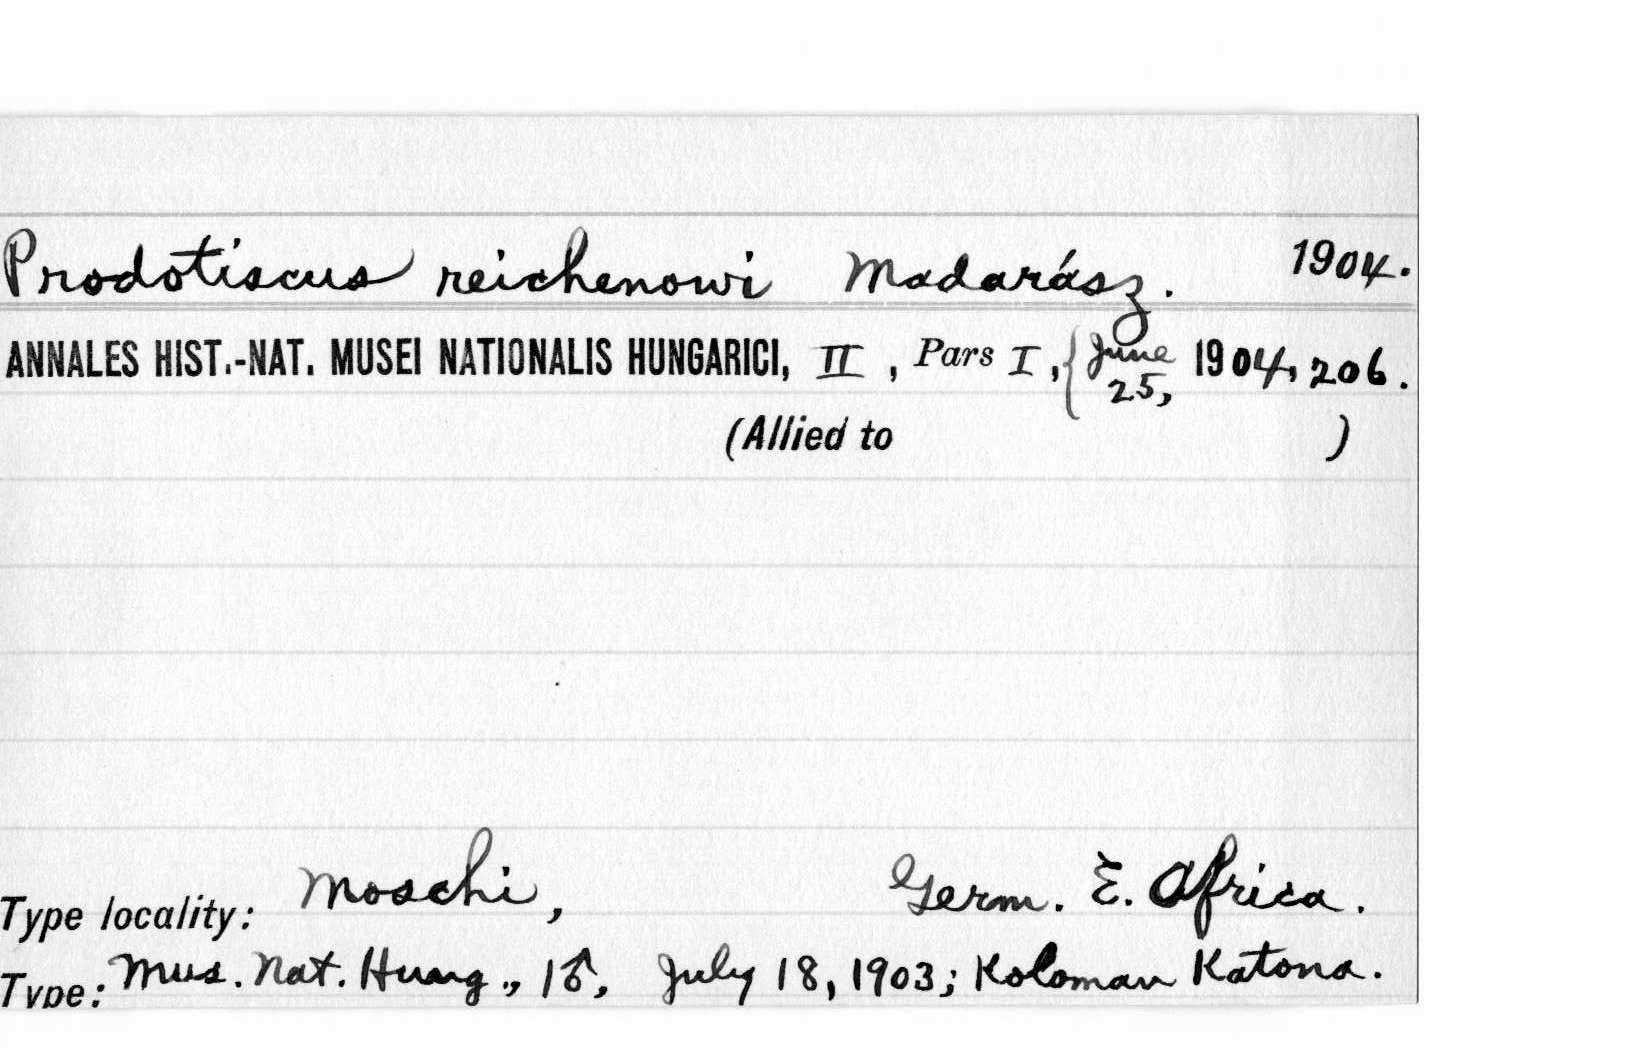 Prodotiscus reichenowi Madarász. 1904.
ANNALES HIST.-NAT. MUSEI NATIONALIS HUNGARICI, II, Pars I, { June 25, 1904, 206.
(Allied to )
Type locality: Moschi, Germ. E. Africa.
Type: Mus. Nat. Hung., 1♂, July 18, 1903; Koloman Katona.